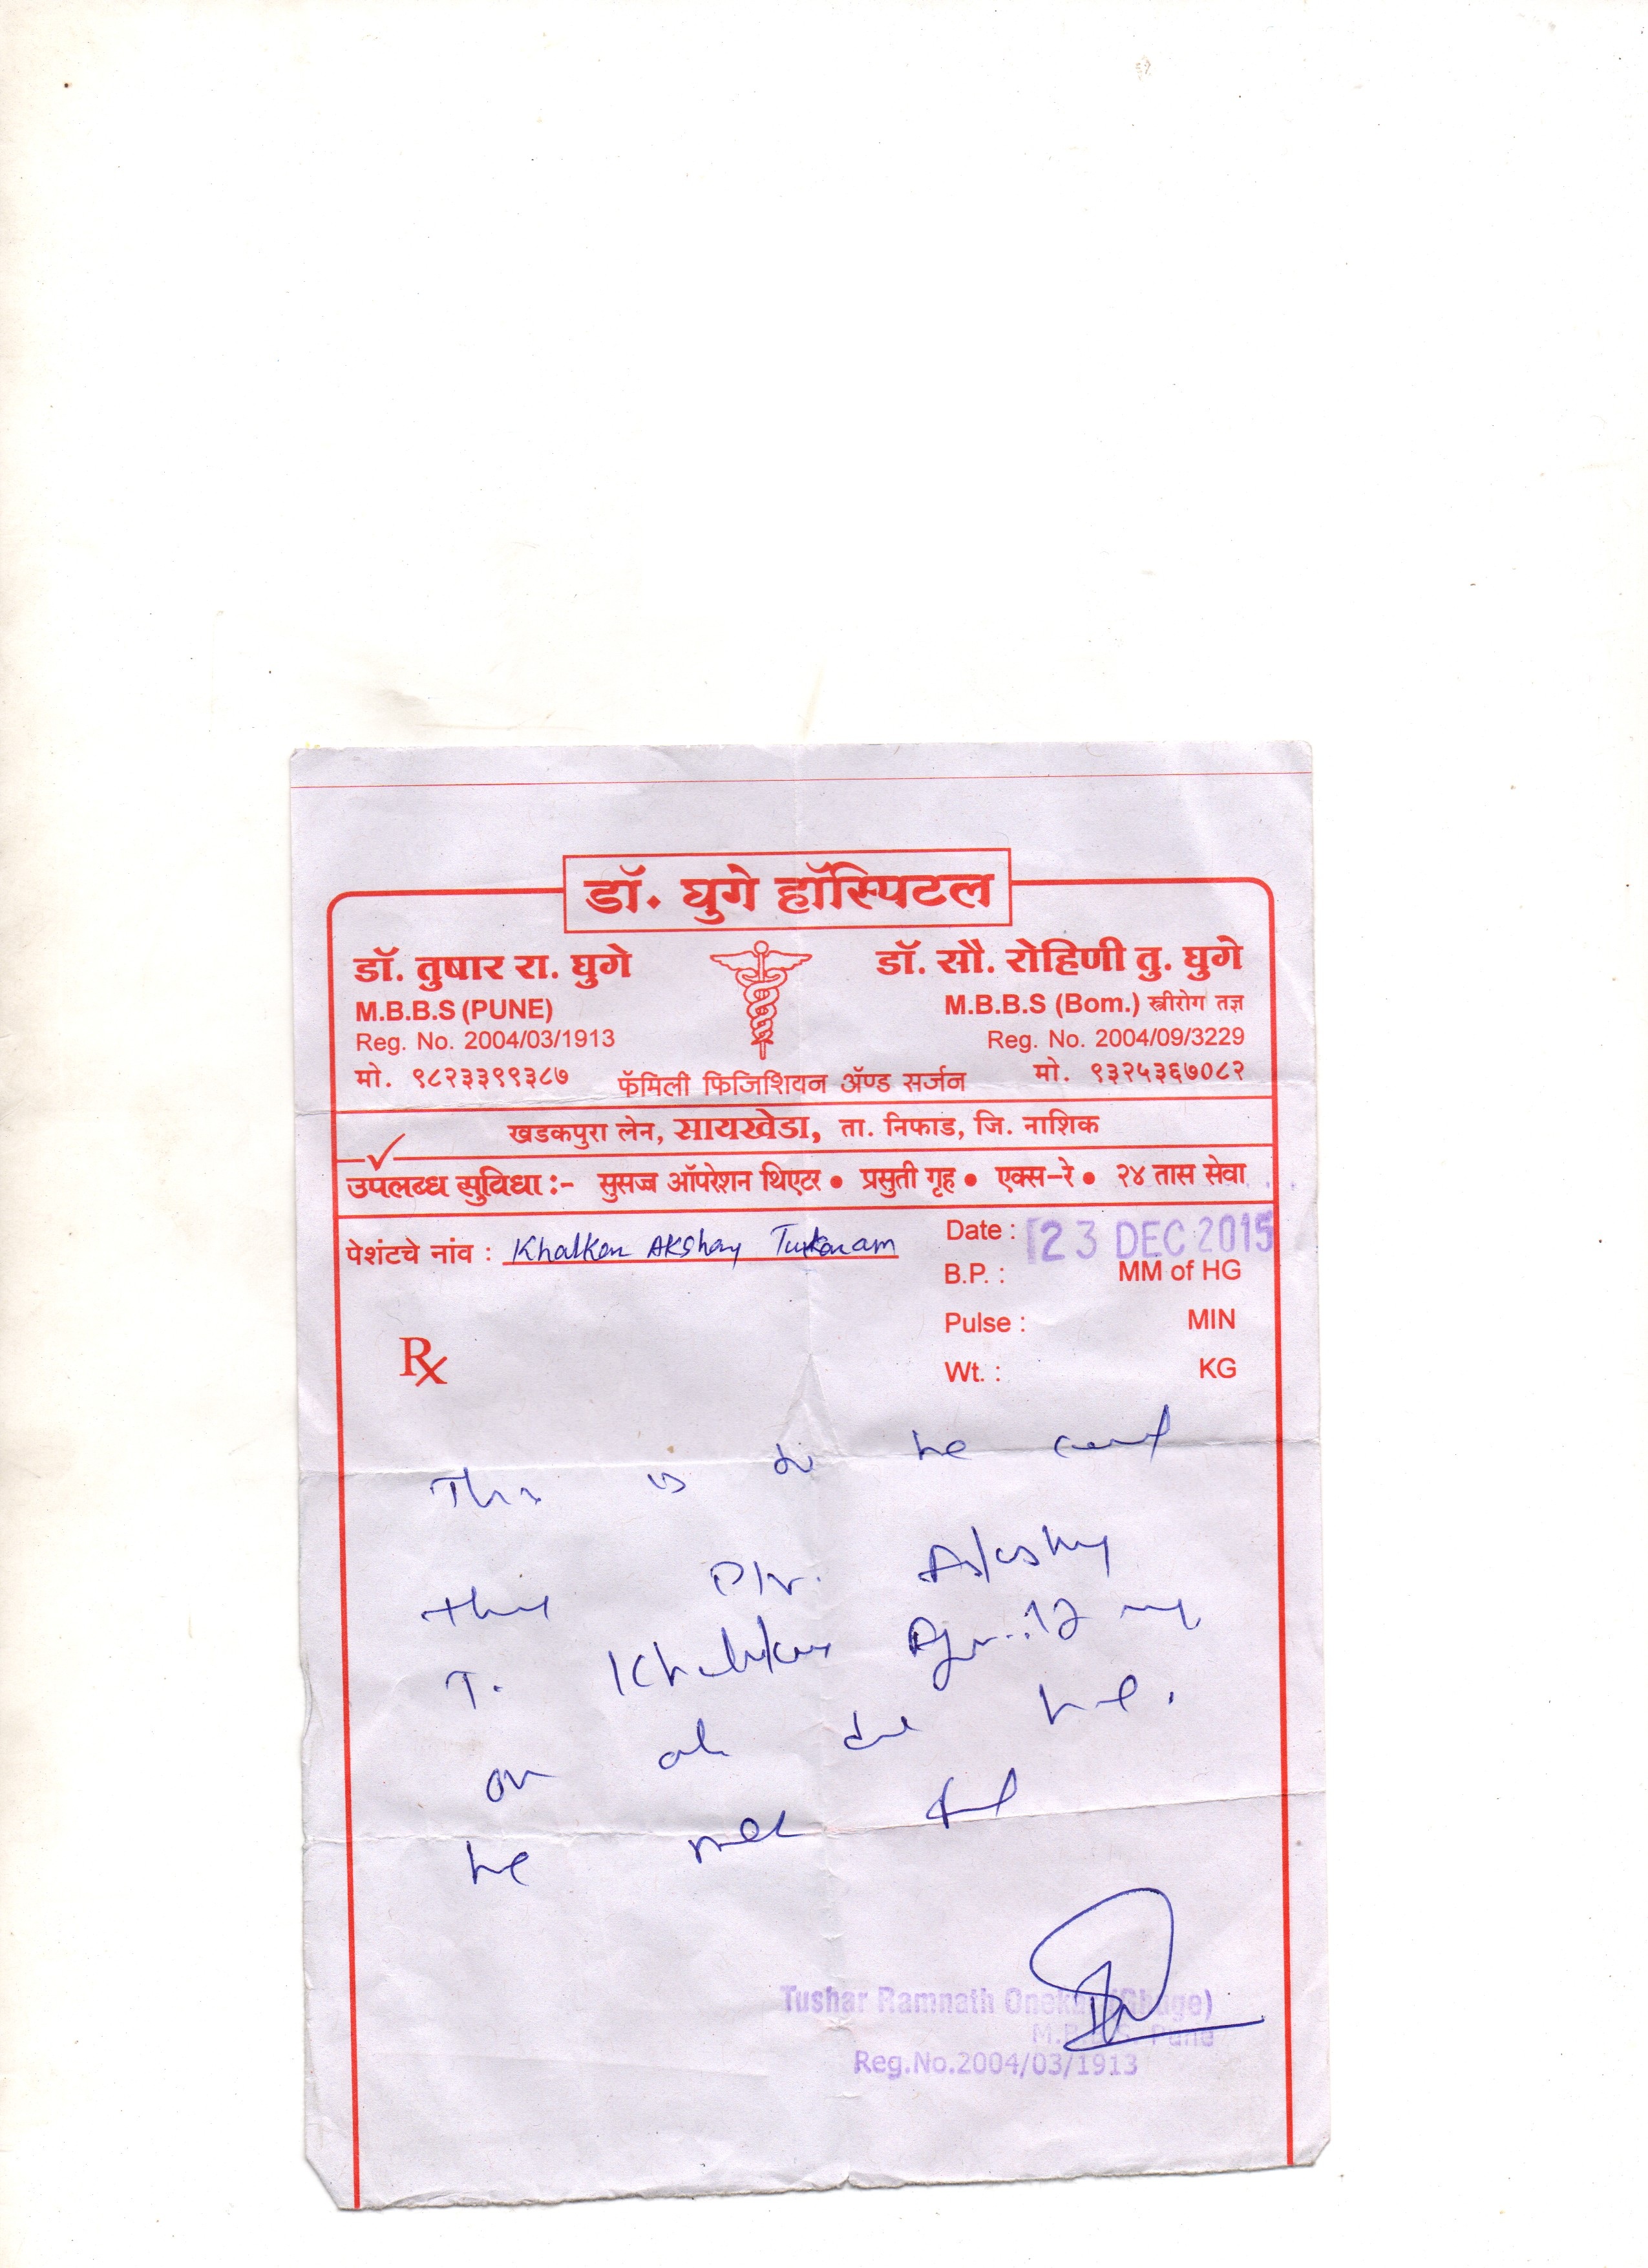 डॉ. घुगे हॉस्पिटल
डॉ. तुषार रा. घुगे
M.B.B.S (PUNE)
Reg. No. 2004/03/1913
मो. ९८२३३९९३८७
डॉ. सौ. रोहिणी तु. घुगे
M.B.B.S (Bom.) स्त्रीरोग तज्ञ
Reg. No. 2004/09/3229
मो. ९३२५३६७०८२
फॅमिली फिजिशियन ॲण्ड सर्जन
खडकपुरा लेन, सायखेडा, ता. निफाड, जि. नाशिक
उपलब्ध सुविधा :- सुसज्ज ऑपरेशन थिएटर • प्रसुती गृह • एक्स-रे • २४ तास सेवा
पेशंटचे नांव : Khalkar Akshay Tukaram
Date : 23 DEC 2015
B.P. : MM of HG
Pulse : MIN
Wt. : KG
Rx
This is
Akshay
T. Khalkar
on
he
Tushar Ramnath (Ghuge)
M.B.B.S. Pune
Reg.No.2004/03/1913